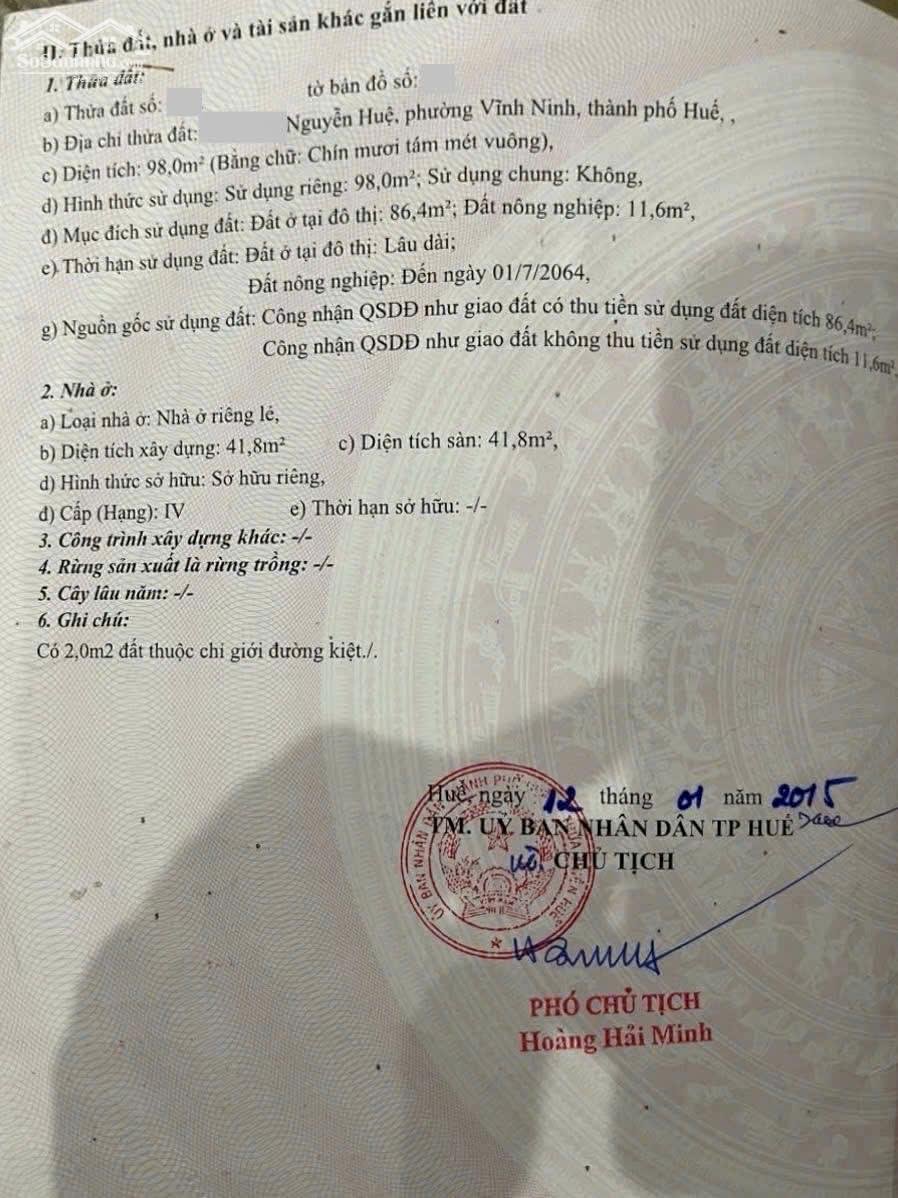 II. Thửa đất, nhà ở và tài sản khác gắn liền với đất
1. Thửa đất:
a) Thửa đất số: tờ bản đồ số:
b) Địa chỉ thửa đất: Nguyễn Huệ, phường Vĩnh Ninh, thành phố Huế, ,
c) Diện tích: 98,0m² (Bằng chữ: Chín mươi tám mét vuông),
d) Hình thức sử dụng: Sử dụng riêng: 98,0m²; Sử dụng chung: Không,
đ) Mục đích sử dụng đất: Đất ở tại đô thị: 86,4m²; Đất nông nghiệp: 11,6m²,
e) Thời hạn sử dụng đất: Đất ở tại đô thị: Lâu dài;
Đất nông nghiệp: Đến ngày 01/7/2064,
g) Nguồn gốc sử dụng đất: Công nhận QSDĐ như giao đất có thu tiền sử dụng đất diện tích 86,4m²;
Công nhận QSDĐ như giao đất không thu tiền sử dụng đất diện tích 11,6m²,
2. Nhà ở:
a) Loại nhà ở: Nhà ở riêng lẻ,
b) Diện tích xây dựng: 41,8m² c) Diện tích sàn: 41,8m²,
d) Hình thức sở hữu: Sở hữu riêng,
đ) Cấp (Hạng): IV e) Thời hạn sở hữu: -/-
3. Công trình xây dựng khác: -/-
4. Rừng sản xuất là rừng trồng: -/-
5. Cây lâu năm: -/-
6. Ghi chú:
Có 2,0m2 đất thuộc chỉ giới đường kiệt./.
Huế, ngày 12 tháng 01 năm 2015
TM. UỶ BAN NHÂN DÂN TP HUẾ
CHỦ TỊCH
PHÓ CHỦ TỊCH
Hoàng Hải Minh